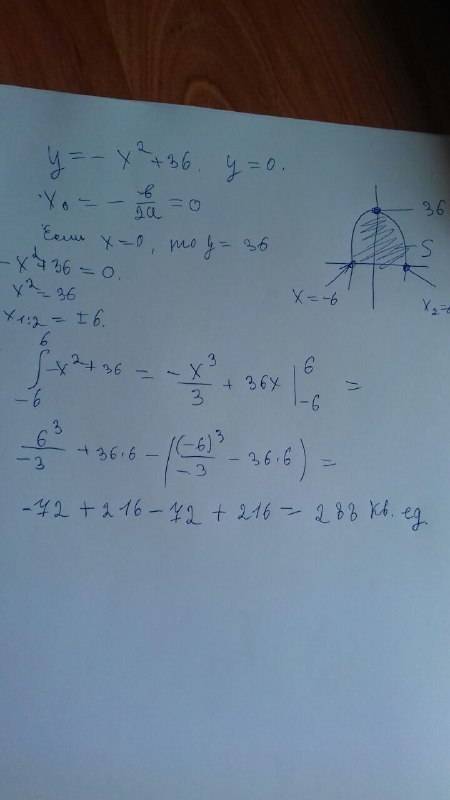 y = - x² + 36, y = 0.
x₀ = - в/2a = 0
Если x=0, то y = 36
- x² + 36 = 0.
x² = 36
x1:2 = ± 6.
36
S
x = -6
x₂=6
∫₋₆⁶ -x² + 36 = -x³/3 + 36x |₋₆⁶ =
6³/-3 + 36·6 - ((-6)³/-3 - 36·6) =
-72 + 216 - 72 + 216 = 288 кв. ед.